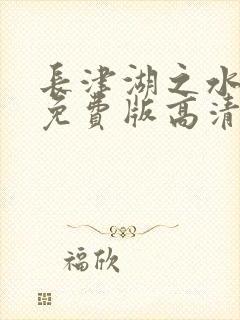 長津湖之水
免費版高清
福欣